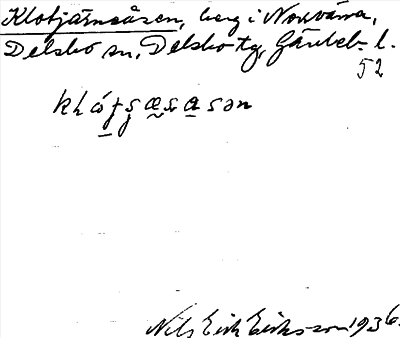 Klotjärnsåsen, berg i Norrväna,
Delsbo sn, Delsbo tg, Gävleb. l.
52
Nils Erik Eriksson 1936.